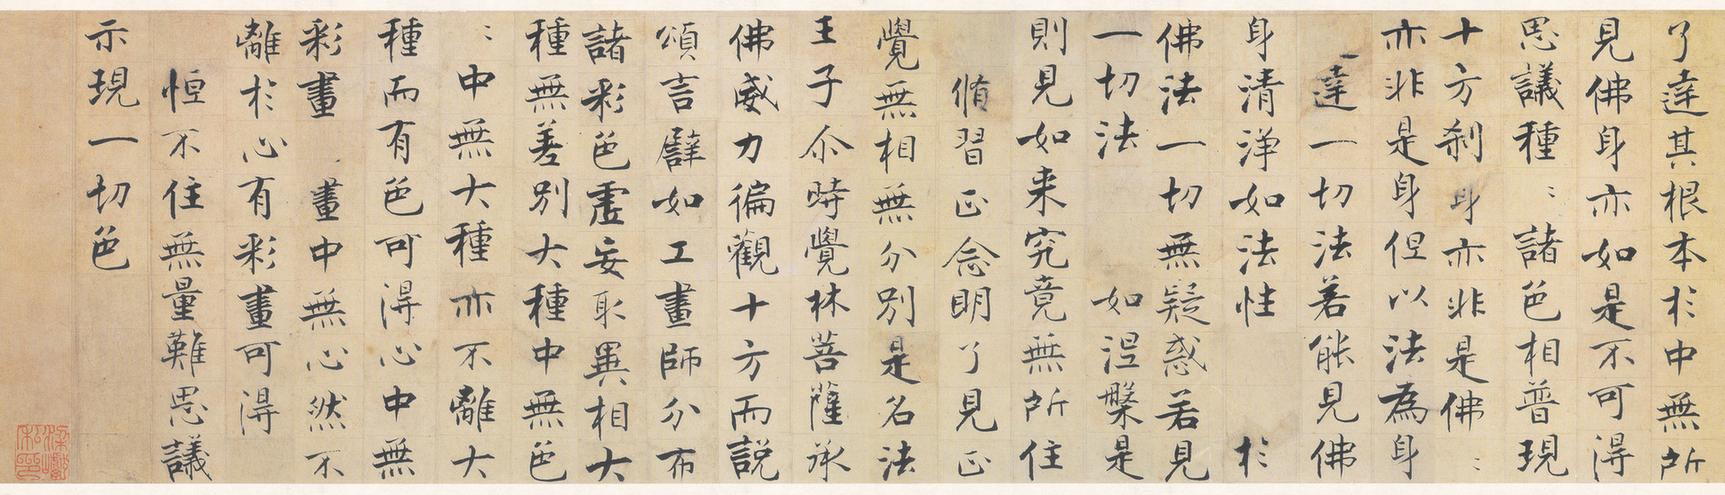 了達其根本於中無所
見佛身亦如是不可得
思議種〻諸色相普現
十方刹身亦非是佛〻
亦非是身但以法為身
達一切法若能見佛
身清淨如法性 於
佛法一切無疑惑若見
一切法 如涅槃是
則見如来究竟無所住
脩習正念明了見正
覺無相無分別是名法
王子尒時覺林菩薩承
佛威力徧觀十方而説
頌言譬如工畫師分布
諸彩色虛妄取異相大
種無差別大種中無色
〻中無大種亦不離大
種而有色可得心中無
彩畫 畫中無心然不
離於心有彩畫可得
恒不住無量難思議
示現一切色